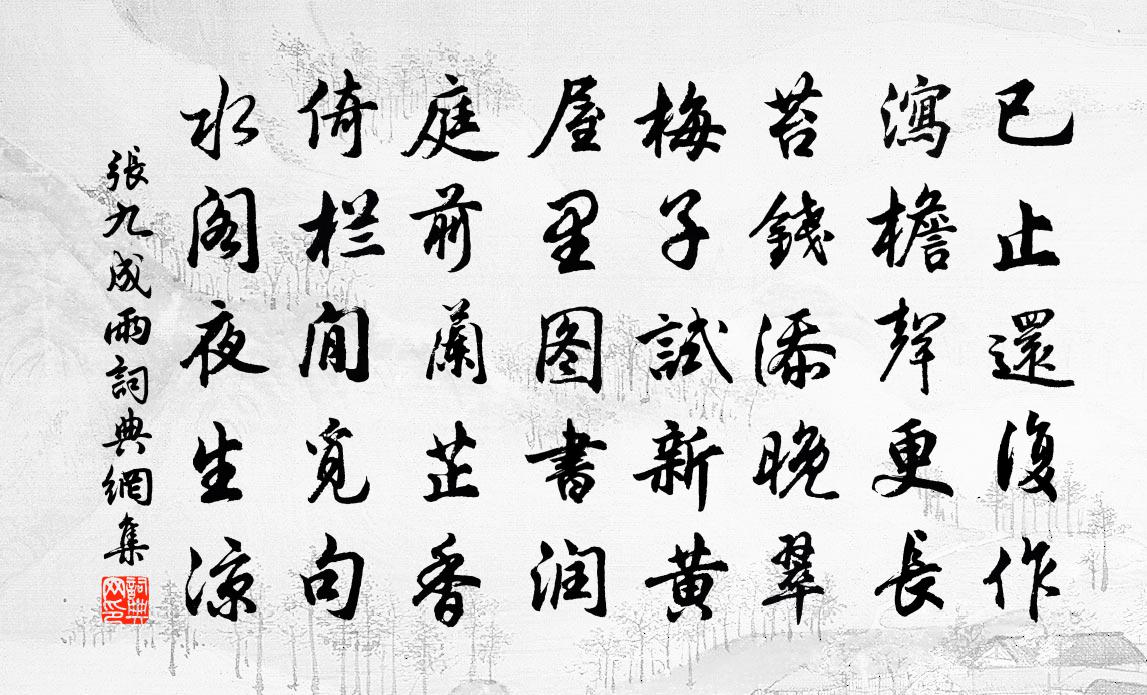 已止還復作
瀉檐聲更長
苔錢添晚翠
梅子試新黄
屋里图書润
庭前蘭芷香
倚栏閒覓句
水阁夜生凉
張九成雨詞典網集
詞典網印